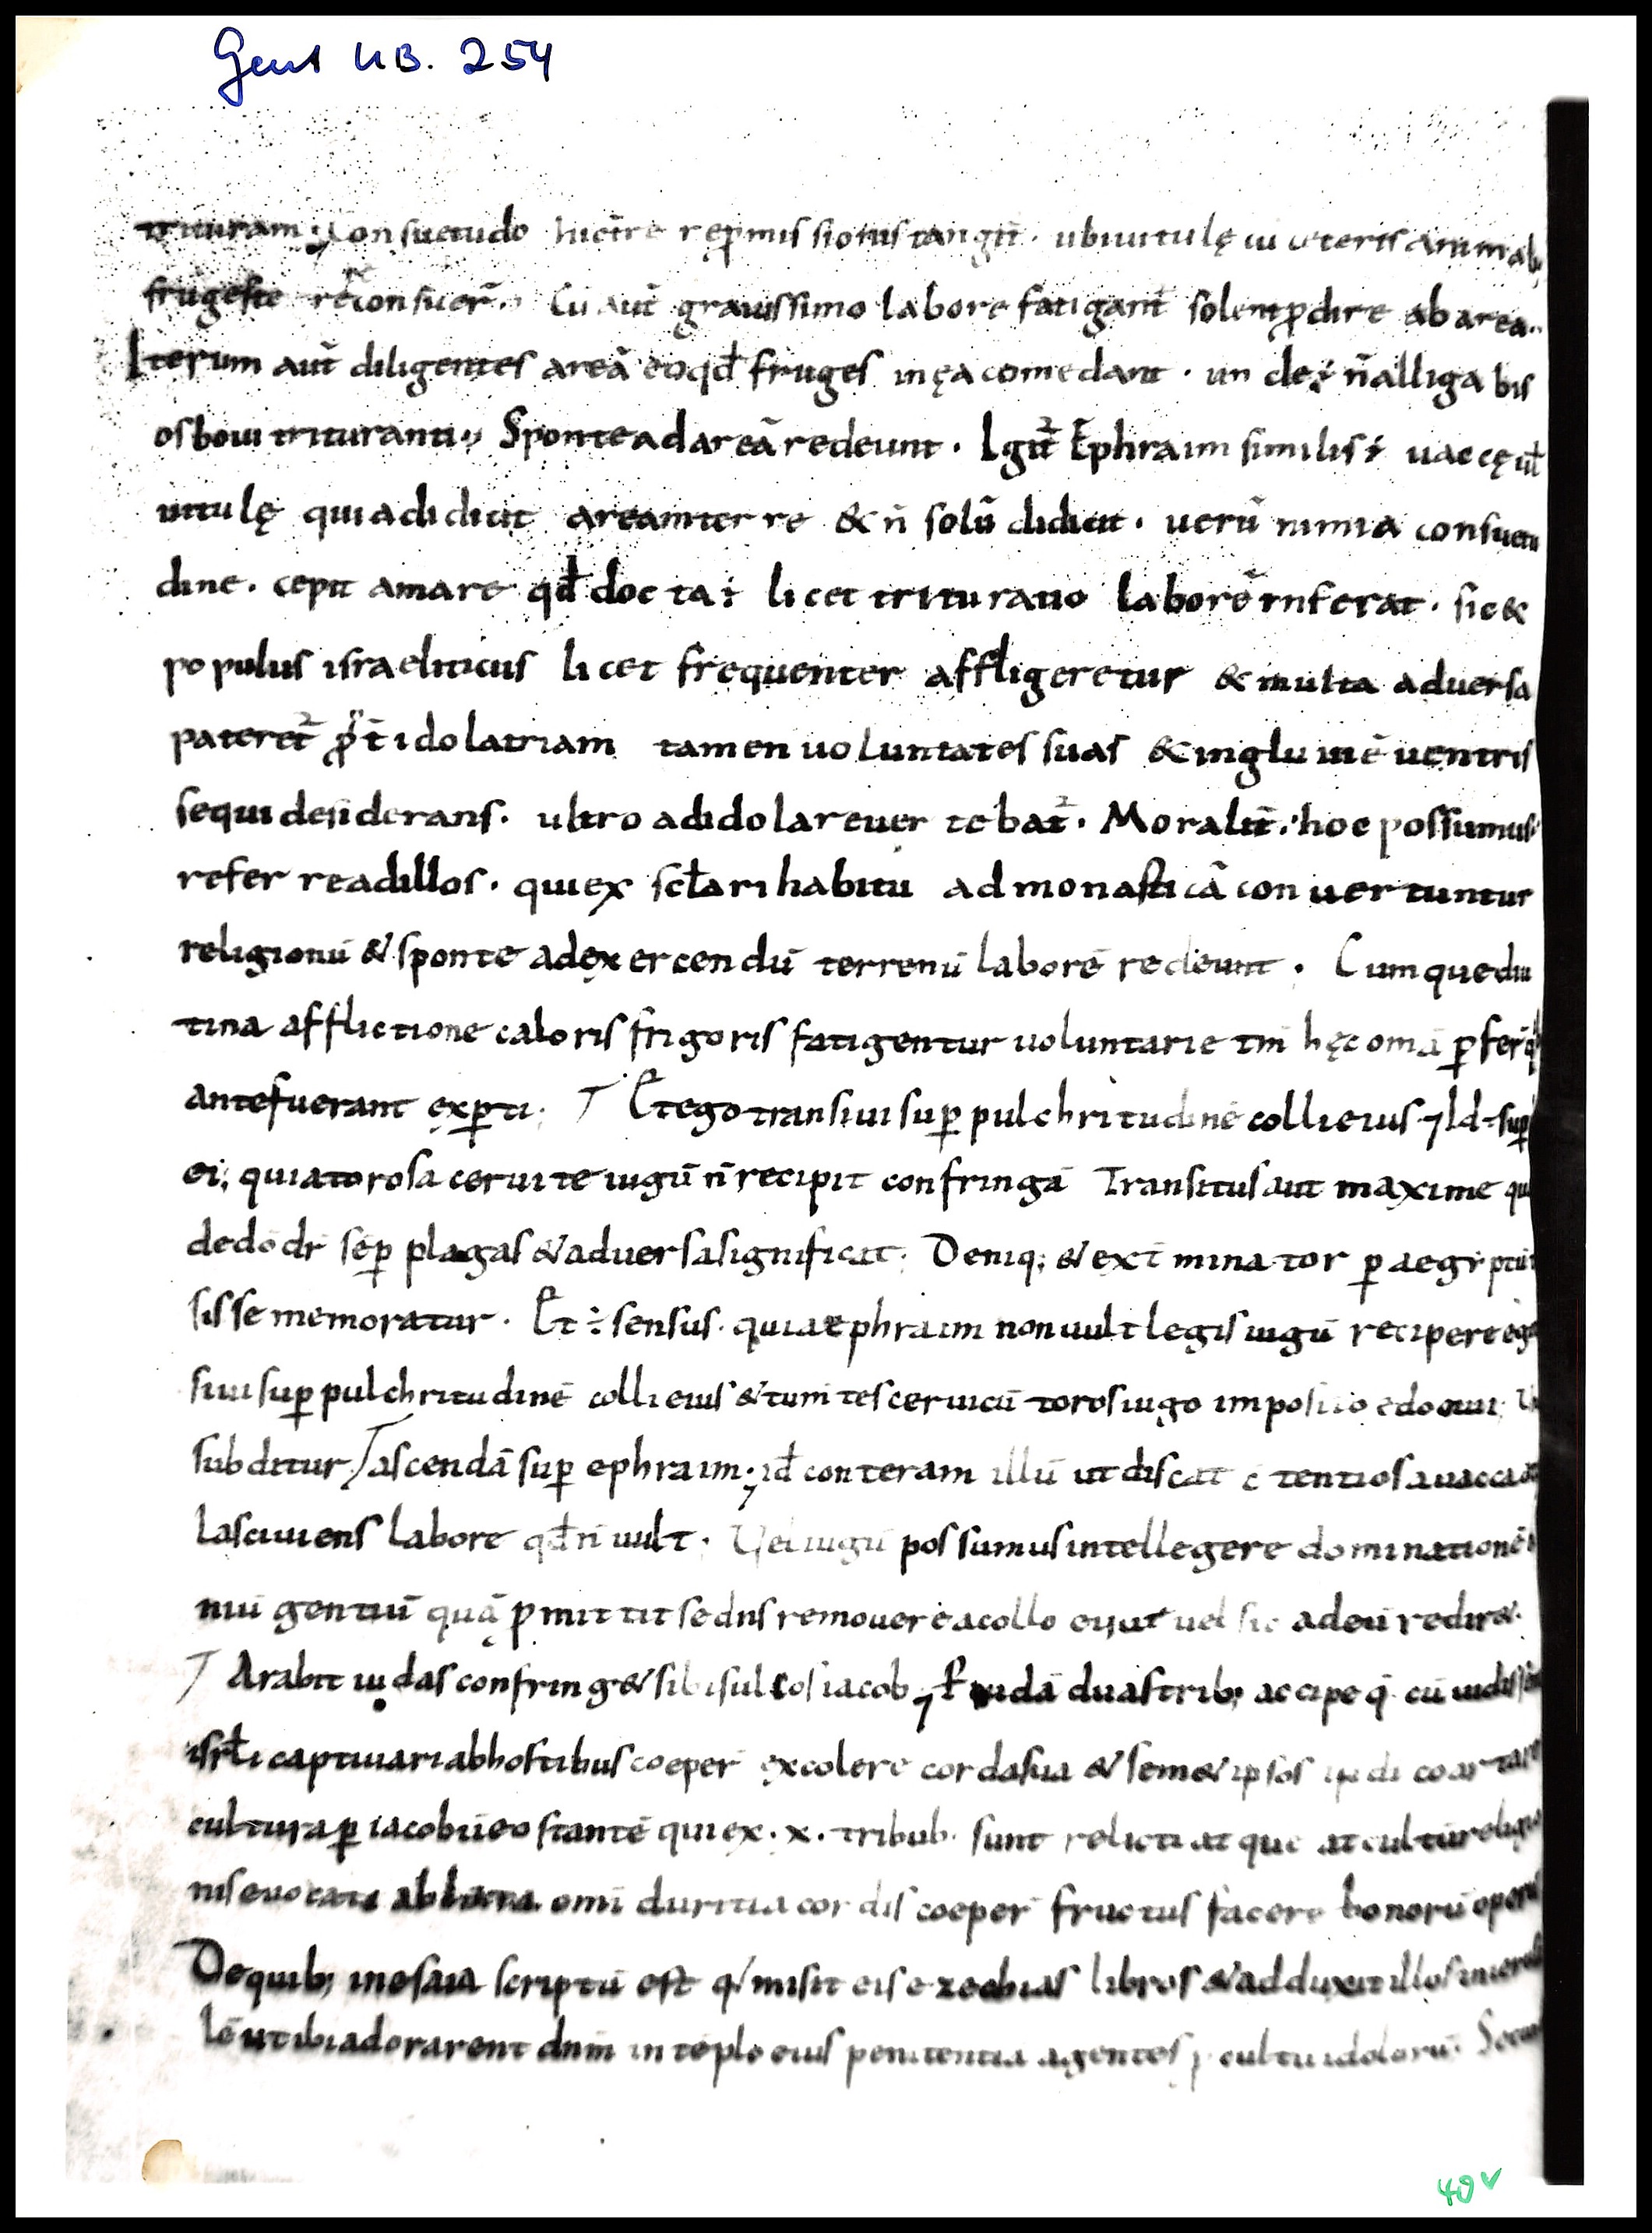 Gent UB. 254
trituram; Consuetudo hic tr̄e repmissionis tangit̄. ubi uitulę cū ceteris animalib;
fruges tererе consuer̄. Cū aut̄ grauissimo labore fatigant̄ solent ꝓdire ab area.
Iterum aut̄ diligentes areā eo qđ fruges in ea comedant. unde ÷ n̄ alligabis
os boui trituranti. Sponte ad areā redeunt. Igit̄ Ephraim similis ÷ uaccę ul̄
uitulę qui a didicit aream terre & n̄ solū didicit. uerū nimia consuetu
dine. cepit amare qđ docta ÷ licet trituratio laborē inferat. sic &
populus israeliticus licet frequenter affligeretur & multa aduersa
pateret̄ ꝓt̄ idolatriam tamen uoluntates suas & ingluuiē uentris
sequi desiderans. ultro ad idola reuertebat̄. Moralit̄. hoc possumus
referre ad illos. qui ex scl̄ari habitu ad monasticā conuertuntur
religionū & sponte ad exercendū terrenū laborē redeunt. Cumque diu
tina afflictione caloris frigoris fatigentur uoluntarie tm̄ hęc om̄a ꝑfer q
ante fuerant exꝑti; Et ego transiui suꝑ pulchritudinē colli eius id ÷ suꝑ
ei; quia torosa ceruice iugū n̄ recipit confringā Transitus aut maxime qu
de dō dr̄ sēꝑ plagas & aduersa significat. Deniq; & ext̄minator ꝑ aegiptū
sisse memoratur. Et ÷ sensus. quia ephraim non uult legis iugū recipere ego
siui suꝑ pulchritudinē colli eius & tumētes ceruicū toros iugo imposito edomui;
subditur ascendā suꝑ ephraim; id conteram illū ut discat c̄tentiosa uacca
lasciuiens labore qđ n̄ uult. Uel iugū possumus intellegere dominationē
niū gentiū quā ꝑmittit se dn̄s remouere a collo eius ut uel sic ad eū redire&.
Arabit iudas confring& sibi sulcos iacob; P iudā duas trib; accipe q̄ cū uidis
isrl̄i captiuari ab hostibus coeper̄ excolere corda sua & sem& ipsos
cultura ꝑ iacob ū eos tantē qui ex. x. tribub. sunt relicti atque at cultū religio
nis euocati om̄i duritia cordis coeper̄ fructus facere bonorū operū
De quib; in esaia scriptū est q misit eis ezechias libros & adduxit illos in ierusa
lē ut ibi adorarent dn̄m in tēplo eius penitentia agentes cultu idolorū.
40v